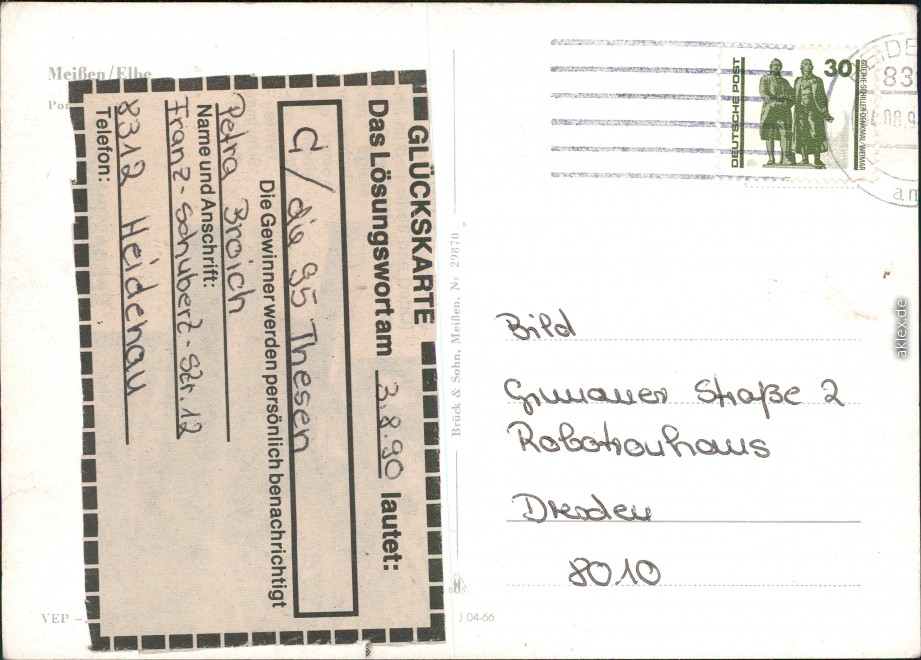 Meißen/Elbe
GLÜCKSKARTE
Das Lösungswort am 3.8.90 lautet:
C/ die 95 Thesen
Die Gewinner werden persönlich benachrichtigt
Petra Broich
Name und Anschrift:
Franz-Schubert-Str. 12
8312 Heidenau
Telefon:
VEP
Brück & Sohn, Meißen, Nr 29870
J 04-66
DEUTSCHE POST
30
GOETHE-SCHILLER-DENKMAL/WEIMAR
83
Bild
Grunaer Straße 2
Robotronhaus
Dresden
8010
aklex.de